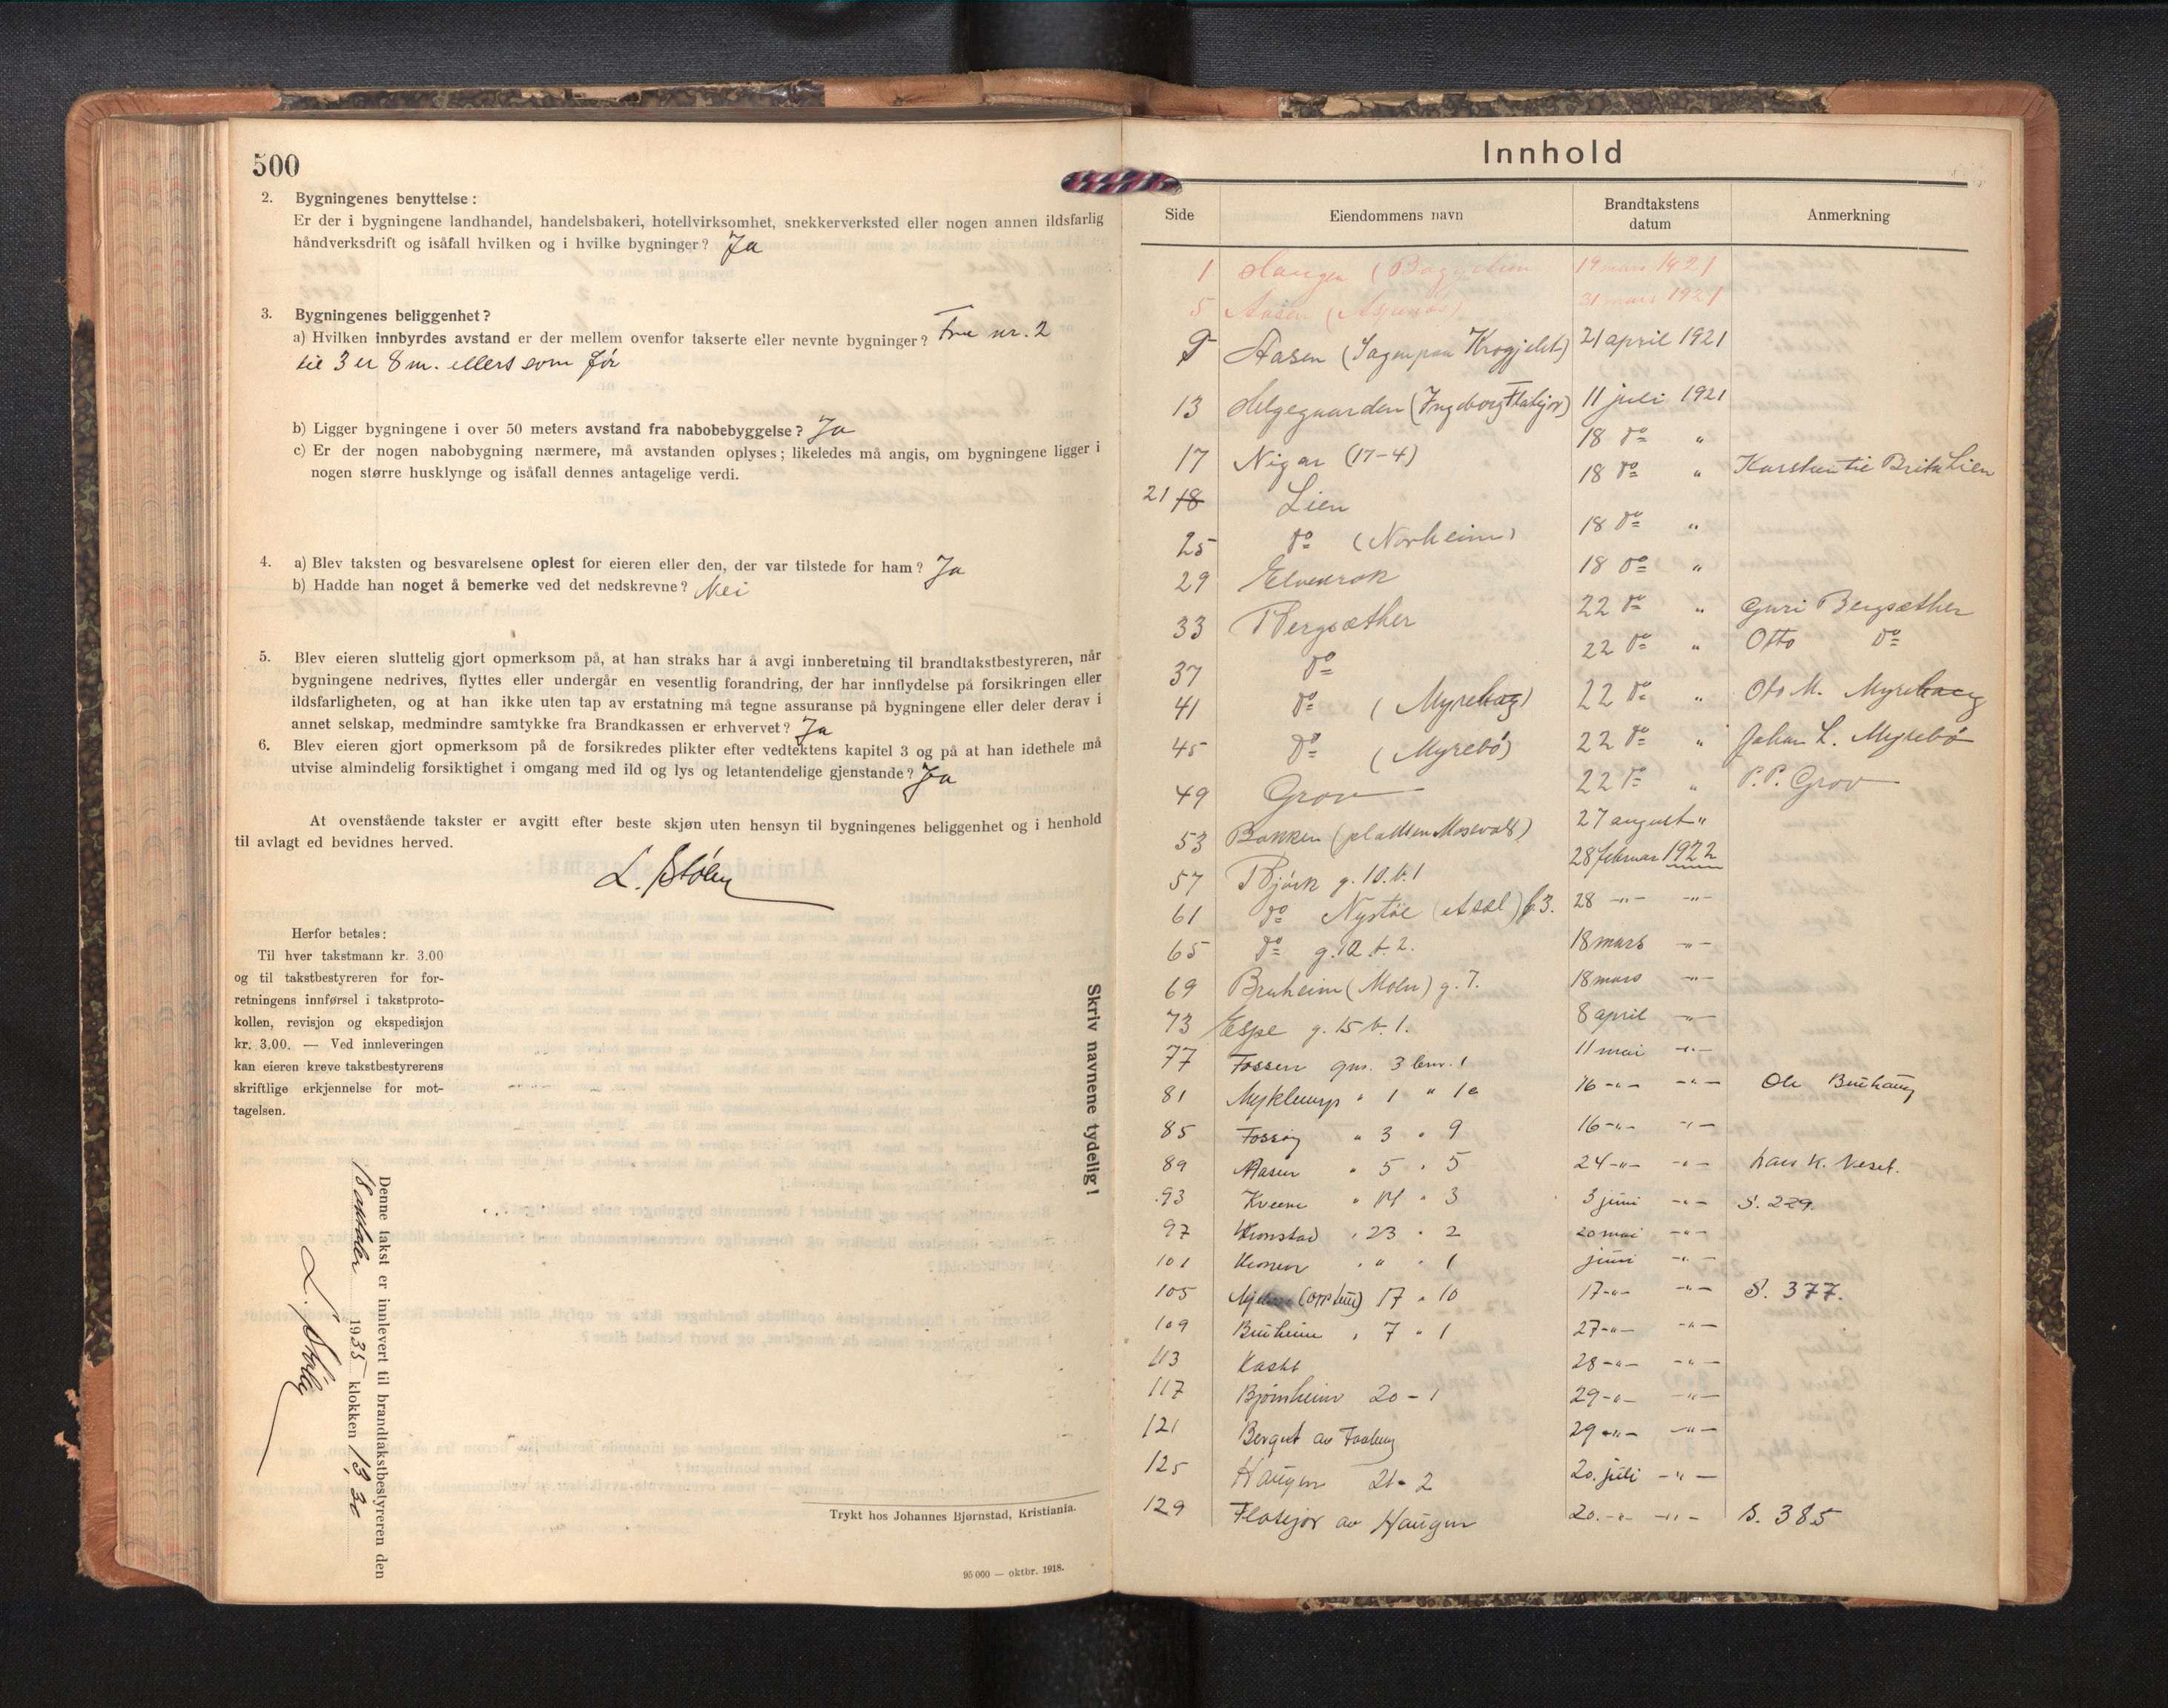 500
2. Bygningenes benyttelse:
Er der i bygningene landhandel, handelsbakeri, hotellvirksomhet, snekkerverksted eller nogen annen ildsfarlig
håndverksdrift og isåfall hvilken og i hvilke bygninger? Ja
3. Bygningenes beliggenhet?
a) Hvilken innbyrdes avstand er der mellem ovenfor takserte eller nevnte bygninger? Fra nr. 2
til 3 er 8 m. ellers som før
b) Ligger bygningene i over 50 meters avstand fra nabobebyggelse? Ja
c) Er der nogen nabobygning nærmere, må avstanden oplyses; likeledes må angis, om bygningene ligger i
nogen større husklynge og isåfall dennes antagelige verdi.
4. a) Blev taksten og besvarelsene oplest for eieren eller den, der var tilstede for ham? Ja
b) Hadde han noget å bemerke ved det nedskrevne? Nei
5. Blev eieren sluttelig gjort opmerksom på, at han straks har å avgi innberetning til brandtakstbestyreren, når
bygningene nedrives, flyttes eller undergår en vesentlig forandring, der har innflydelse på forsikringen eller
ildsfarligheten, og at han ikke uten tap av erstatning må tegne assuranse på bygningene eller deler derav i
annet selskap, medmindre samtykke fra Brandkassen er erhvervet? Ja
6. Blev eieren gjort opmerksom på de forsikredes plikter efter vedtektens kapitel 3 og på at han idethele må
utvise almindelig forsiktighet i omgang med ild og lys og letantendelige gjenstande? Ja
At ovenstående takster er avgitt efter beste skjøn uten hensyn til bygningenes beliggenhet og i henhold
til avlagt ed bevidnes herved.
L. Stølen
Herfor betales:
Til hver takstmann kr. 3.00
og til takstbestyreren for for-
retningens innførsel i takstproto-
kollen, revisjon og ekspedisjon
kr. 3.00. — Ved innleveringen
kan eieren kreve takstbestyrerens
skriftlige erkjennelse for mot-
tagelsen.
Skriv navnene tydelig!
Denne takst er innlevert til brandtakstbestyreren den
18 oktober 1935 klokken 13,30
L. Stølen
Trykt hos Johannes Bjørnstad, Kristiania.
95 000 — oktbr. 1918.
Innhold
Side Eiendommens navn Brandtakstens datum Anmerkning
1 Haugen ( 19 mars 1921
5 Aasen 31 mars 1921
9 Aasen (Sagen paa Krogjelet) 21 april 1921
13 Helgegaarden (Ingeborg Flatejor) 11 juli 1921
17 Nigar (17-4) 18 do "
21 18 Lien 18 do " Karsten til Brita Lien
25 do (Norheim) 18 do "
29 Elvekrok 18 do "
33 Bergsæther 22 do " Guri Bergsæther
37 do 22 do " Otto do
41 do (Myrehaug) 22 do " Oto M. Myrehaug
45 do (Myrebø) 22 do " Johan L. Myrebø
49 Grov 22 do " P.P. Grov
53 Bakken (pladsen Mosvold) 27 august "
57 Bjørk g. 10. b. 1 28 februar 1922
61 do Nystøl b. 3. 28 -"- -"-
65 do g. 10 b. 2. 18 mars -"-
69 Bruheim (Molu) g. 7. 18 mars -"-
73 Espe g. 15 b. 1. 8 april -"-
77 Fossen gnr. 3 bnr. 1 11 mai -"-
81 " 1 " 16 16 -"- -"- Ole
85 Fossøy " 3 " 9 16 -"- -"-
89 Aasen " 5 " 5 24 -"- -"- Lars K.
93 Kveene " 14 " 3 3 juni -"- S. 229.
97 Kronstad " 23 " 2 20 mai -"-
101 Kronen " " " 1 juni -"-
105 17 " 10 17 -"- -"- S. 377.
109 Bruheim " 7 " 1 27 -"- -"-
113 28 -"- -"-
117 Bjørnheim 20 - 1 29 -"- -"-
121 Berqut av 29 -"- -"-
125 Haugen 21 - 2 20. juli -"-
129 Flatejor av Haugen 20. -"- -"- S. 385